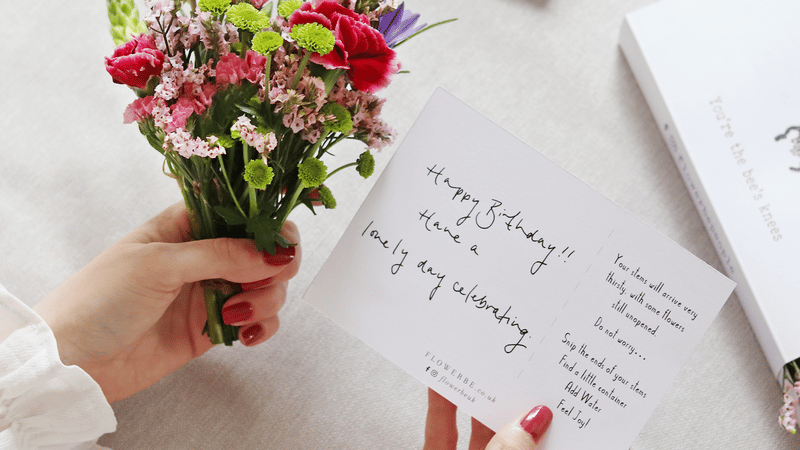 Happy Birthday!!
Have a
lovely day celebrating.
FLOWERBE.co.uk
flowerbeuk
Your stems will arrive very
thirsty, with some flowers
still unopened.
Do not worry...
Snip the ends of your stems
Find a little container
Add Water
Feel Joy!
You're the bee's knees